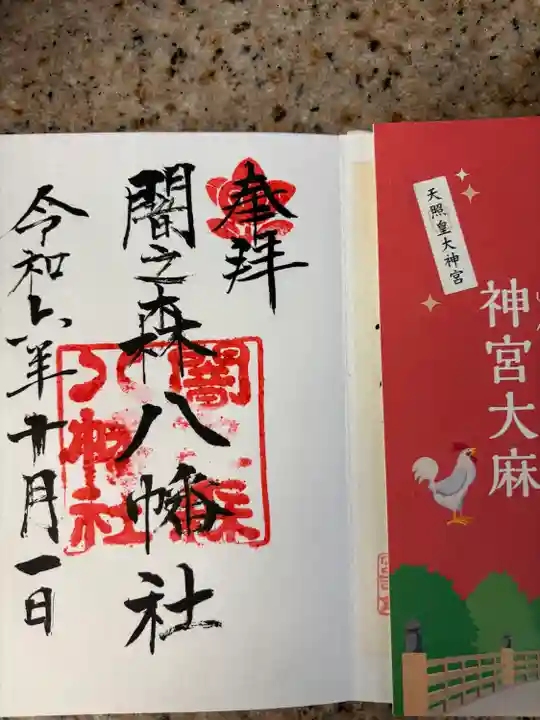 天照皇大神宮
神宮大麻
奉拝
闇之森八幡社
令和六年十月一日